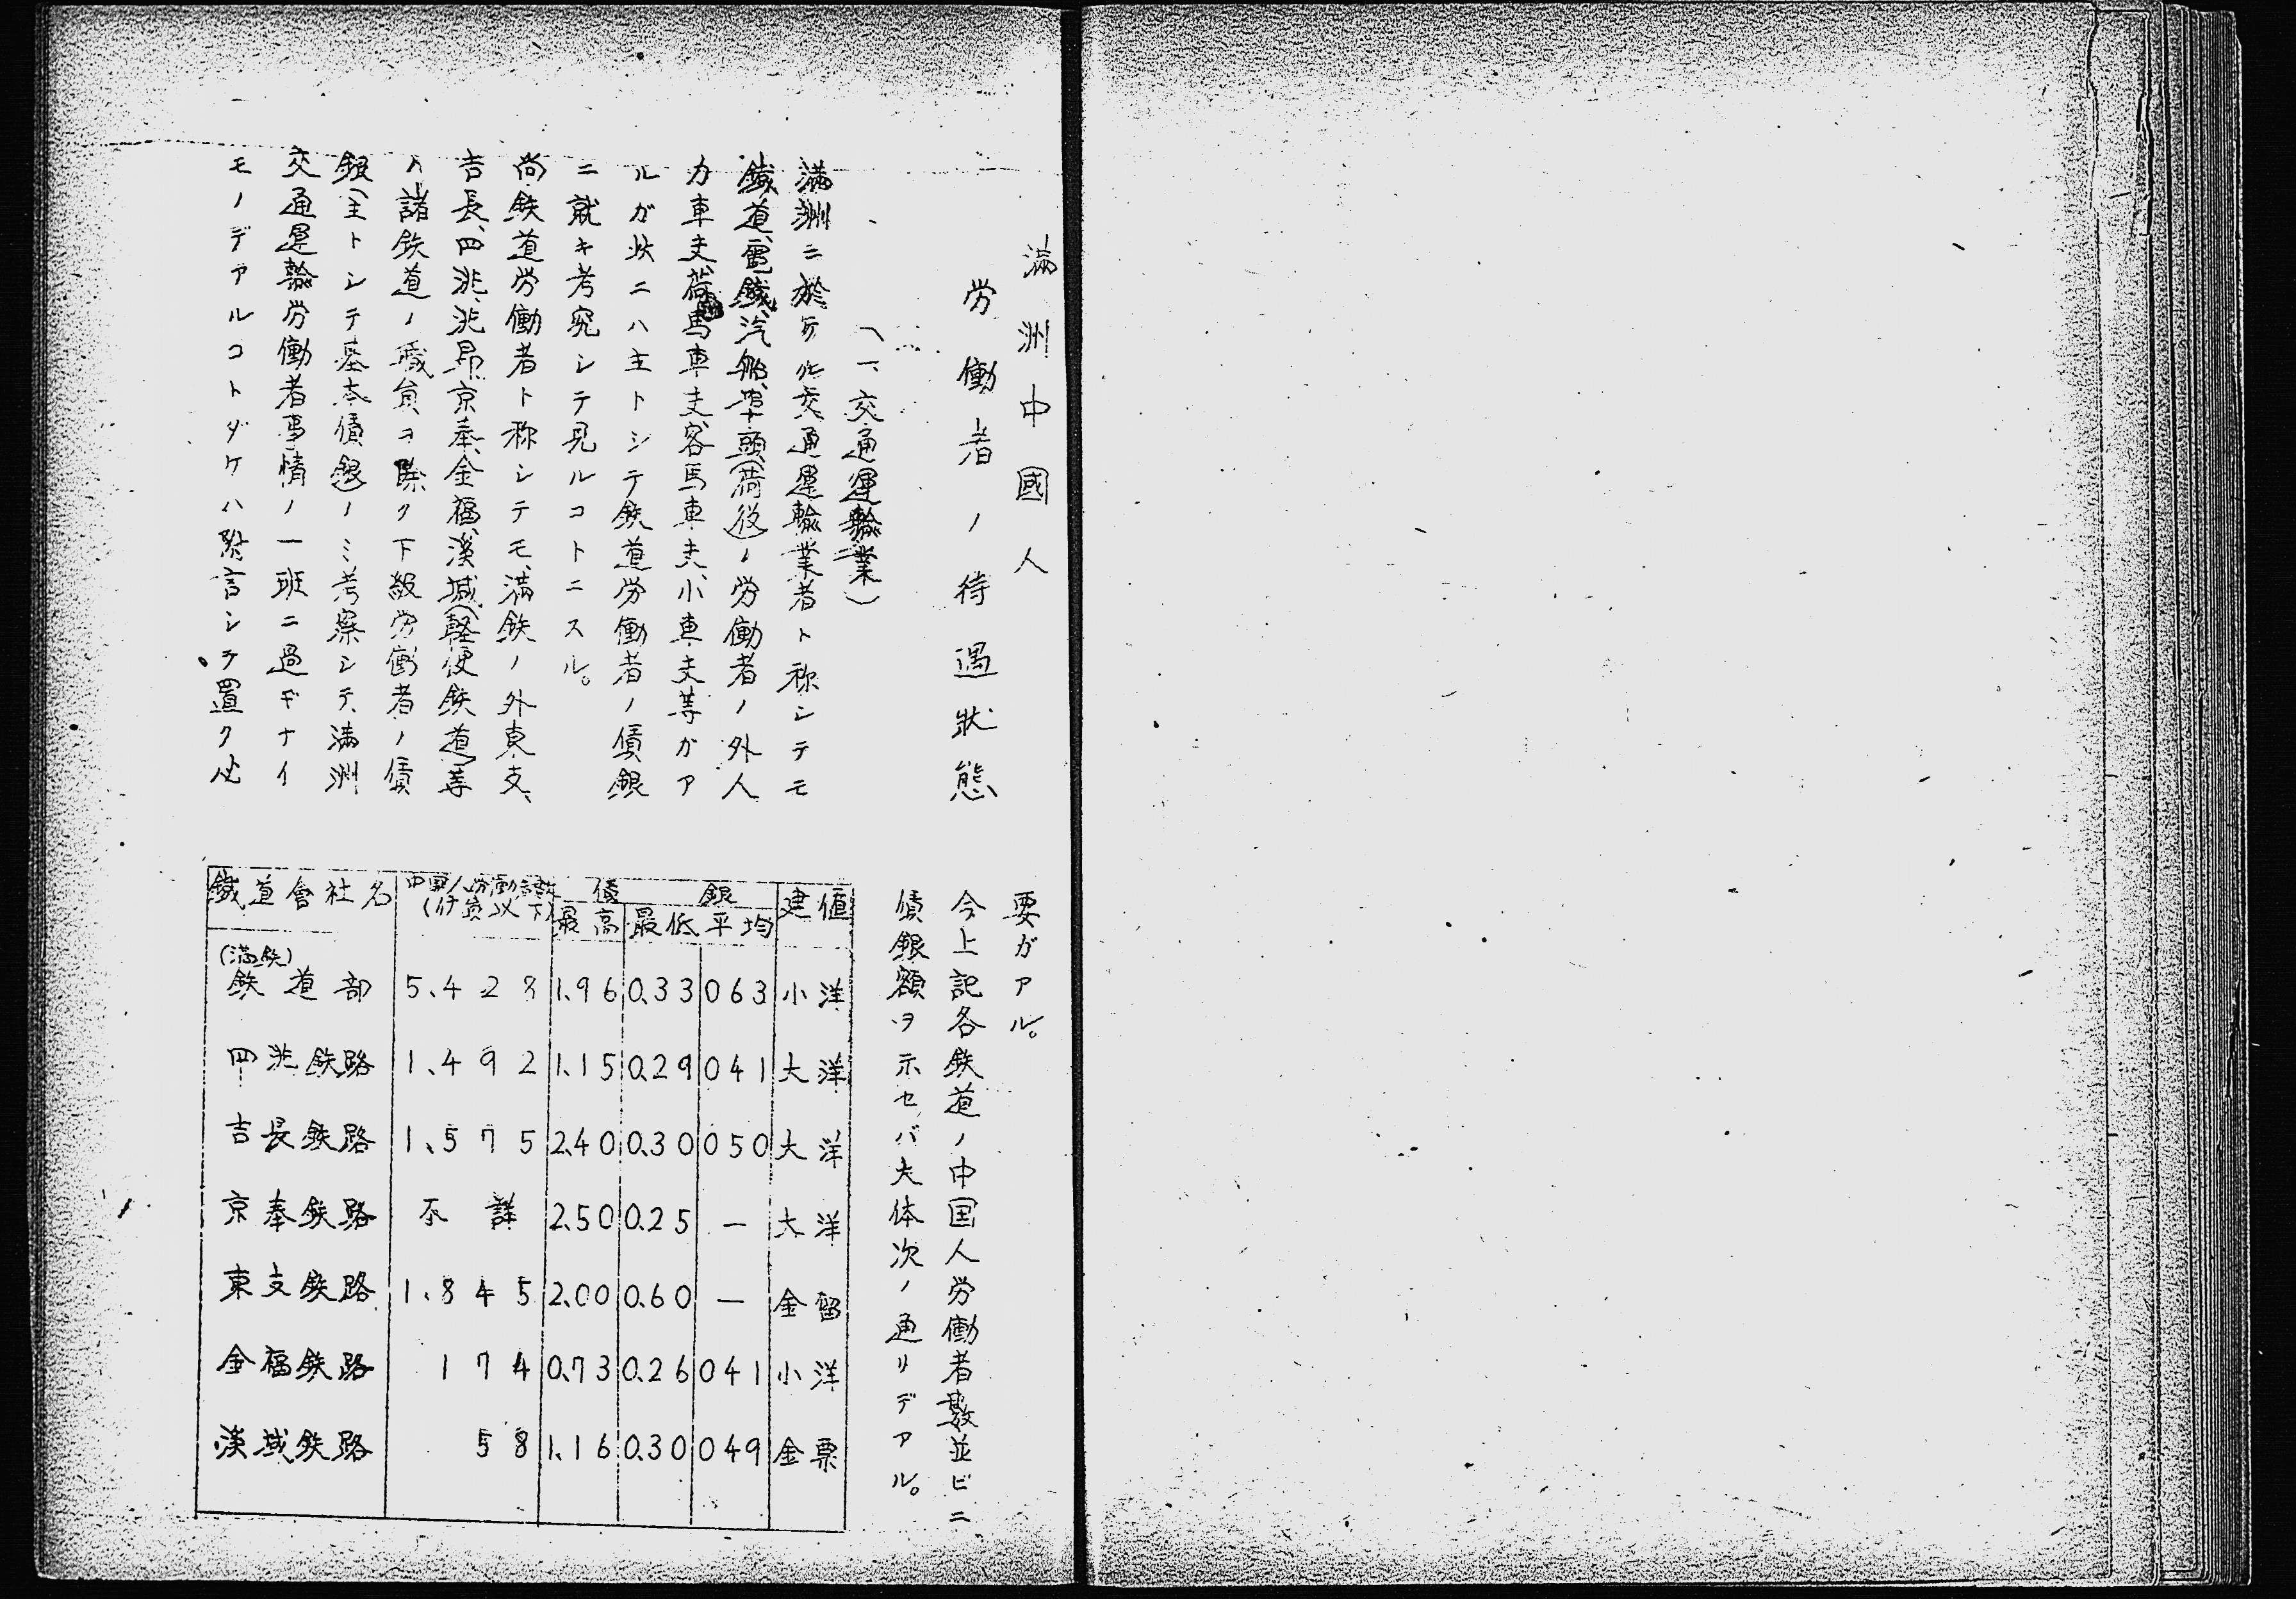 満洲中國人
労働者ノ待遇狀態
(一、交通運輸業)
満洲ニ於ケル交通運輸業者ト称シテモ
鐵道、電鐵、汽船、埠頭(荷役)ノ労働者ノ外人
力車夫、荷馬車夫、客馬車夫、小車夫等ガア
ルガ此ニハ主トシテ鉄道労働者ノ賃銀
ニ就キ考究シテ見ルコトニスル。
尚鉄道労働者ト称シテモ、満鉄ノ外東支、
吉長、四洮、洮昂、京奉、金福、溪堿(軽便鉄道)等
ノ諸鉄道ノ職員ヲ除ク下級労働者ノ賃
銀(主トシテ基本賃銀)ノミ考察シテ、満洲
交通運輸労働者事情ノ一班ニ過ギナイ
モノデアルコトダケハ附言シテ置ク必
要ガアル。
今上記各鉄道ノ中国人労働者数並ビニ
賃銀額ヲ示セバ大体次ノ通リデアル。
鐵道會社名 中国人労働者数(傭員以下) 賃銀 最高 最低 平均 建値
(満鉄)
鉄道部 5、428 1.96 0.33 063 小洋
四洮鉄路 1、492 1.15 0.29 041 大洋
吉長鉄路 1、575 2.40 0.30 050 大洋
京奉鉄路 不詳 2.50 0.25 — 大洋
東支鉄路 1、845 2.00 0.60 — 金留
金福鉄路 174 0.73 0.26 041 小洋
溪堿鉄路 58 1.16 0.30 049 金票